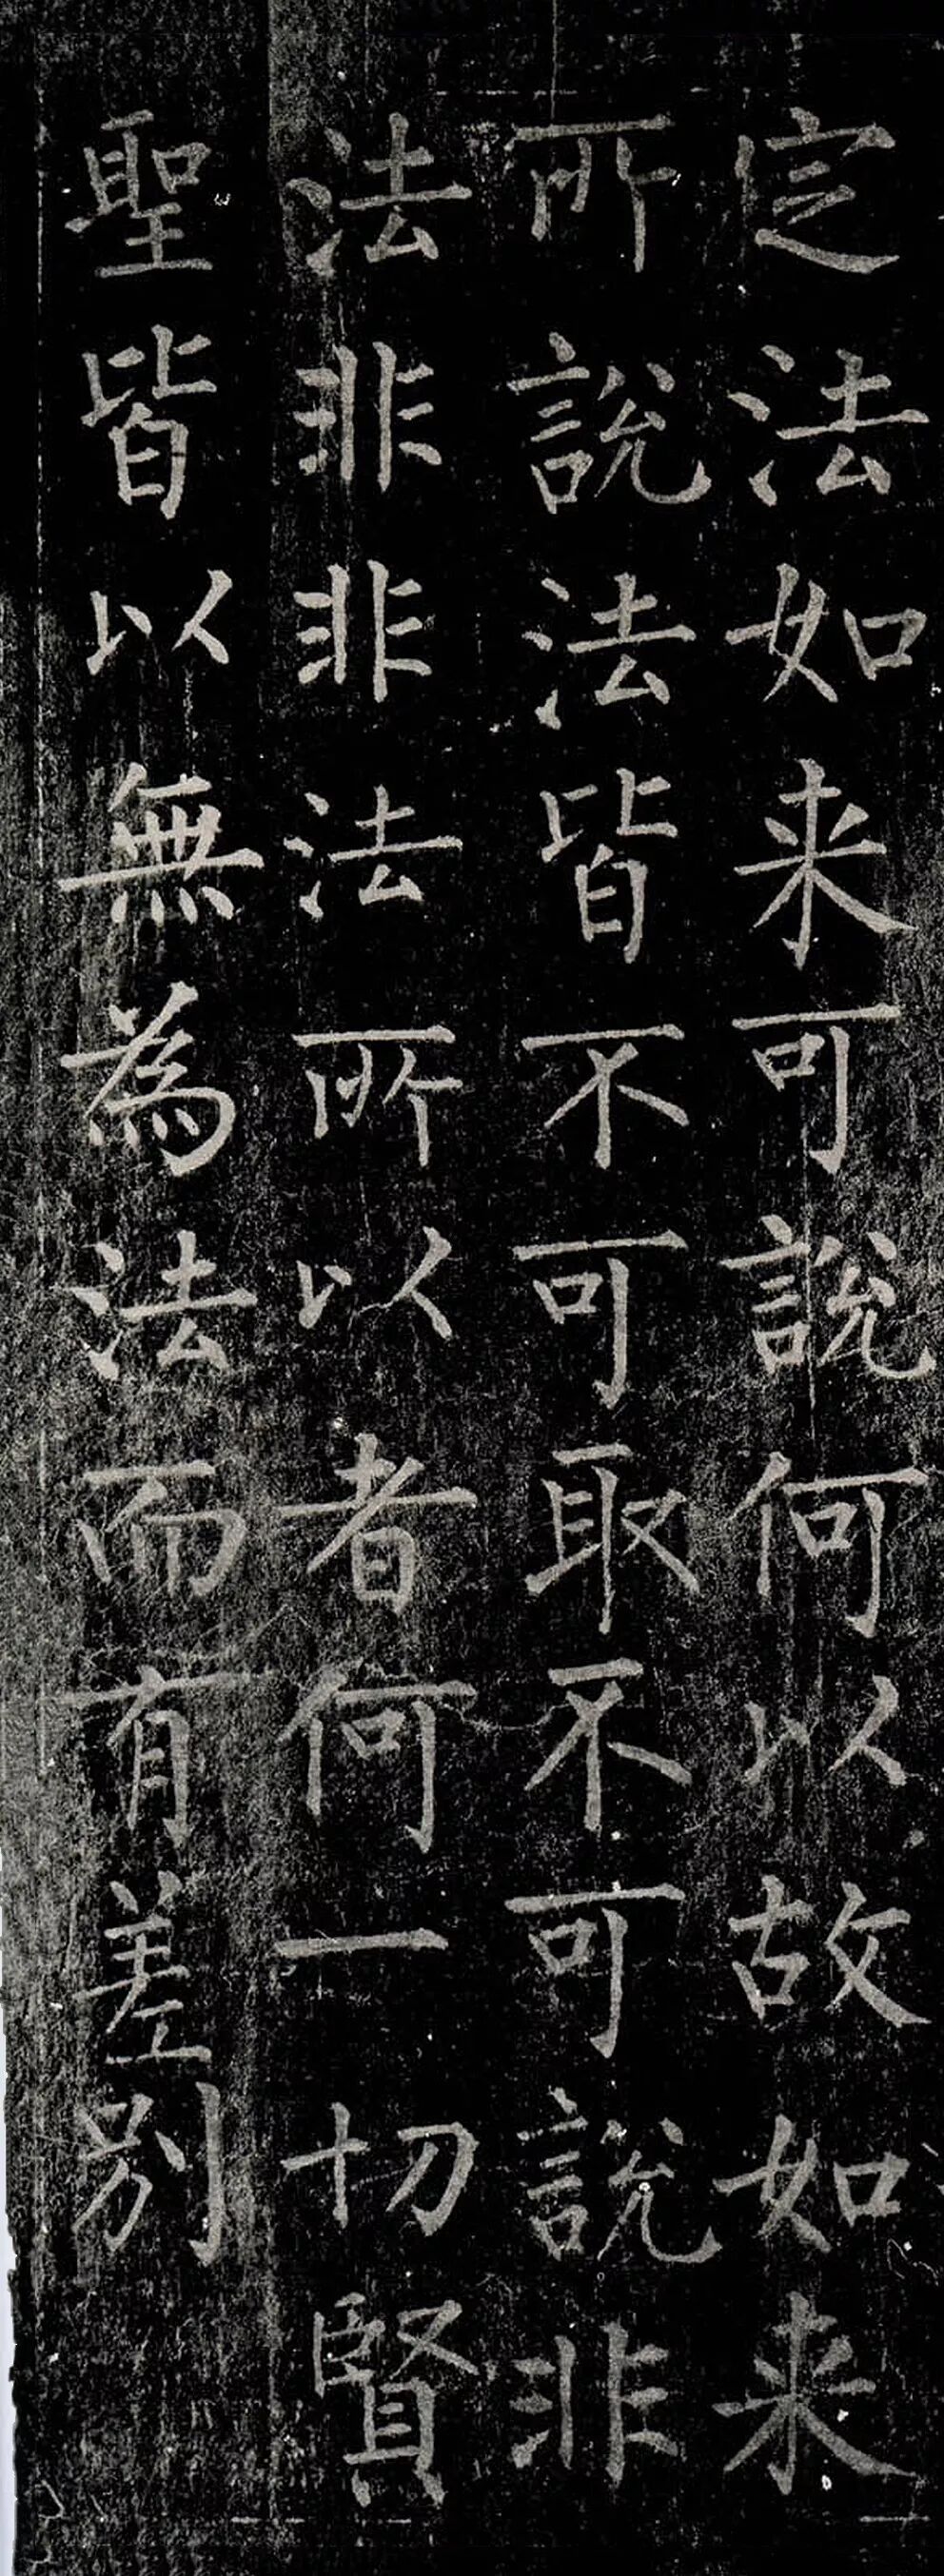 定法如来可說何以故如来
所說法皆不可取不可說非
法非非法所以者何一切賢
聖皆以無為法而有差別